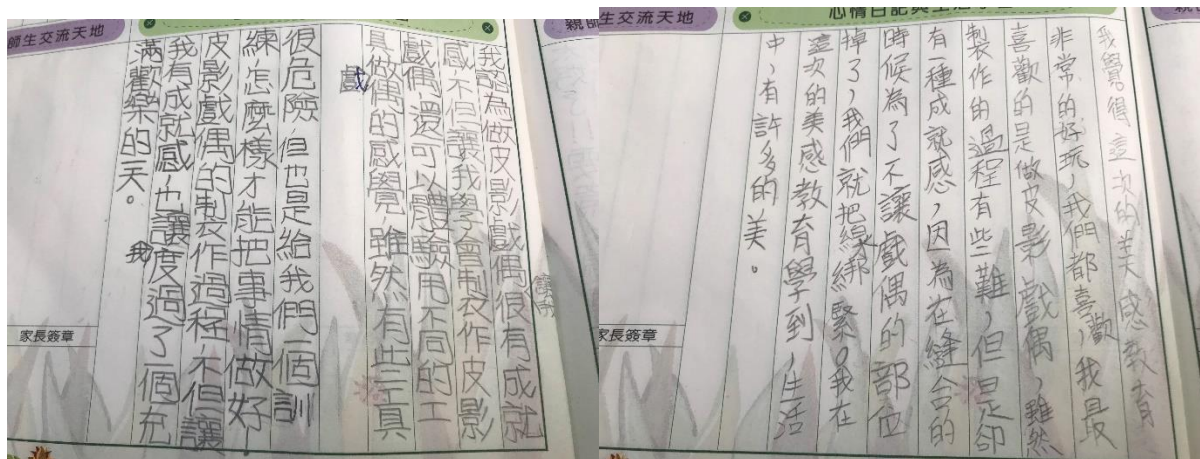 師生交流天地
親師
我認為做皮影戲偶很有成就
感不但讓我學會製作皮影
戲偶還可以體驗用不同的工
具做偶的感覺雖然有些工具
戲
很危險 但也是給我們一個訓
練怎麼樣才能把事情做好！
皮影戲偶的製作過程不但讓
我有成就感也讓度過了一個充
我
滿歡樂的一天。
家長簽章
生交流天地
我覺得這次的美感教育
非常的好玩，我們都喜歡，我最
喜歡的是做皮影戲偶，雖然
製作的過程有些難，但是卻
有一種成就感，因為在縫合的
時候為了不讓戲偶的部位
掉了，我們就把線綁緊。我在
這次的美感教育學到，生活
中，有許多的美。
家長簽章